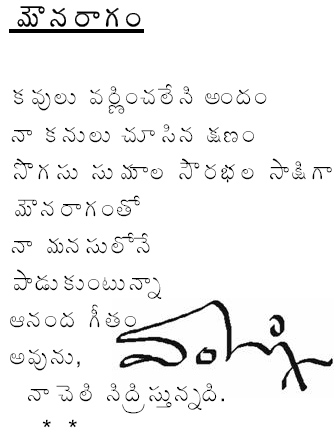 మౌనరాగం
కవులు వర్ణించలేని అందం
నా కనులు చూసిన క్షణం
సొగసు సుమాల సౌరభల సాక్షిగా
మౌనరాగంతో
నా మనసులోనే
పాడుకుంటున్నా
ఆనంద గీతం
అవును,
నా చెలి నిద్రిస్తున్నది.
* *
వంశీ